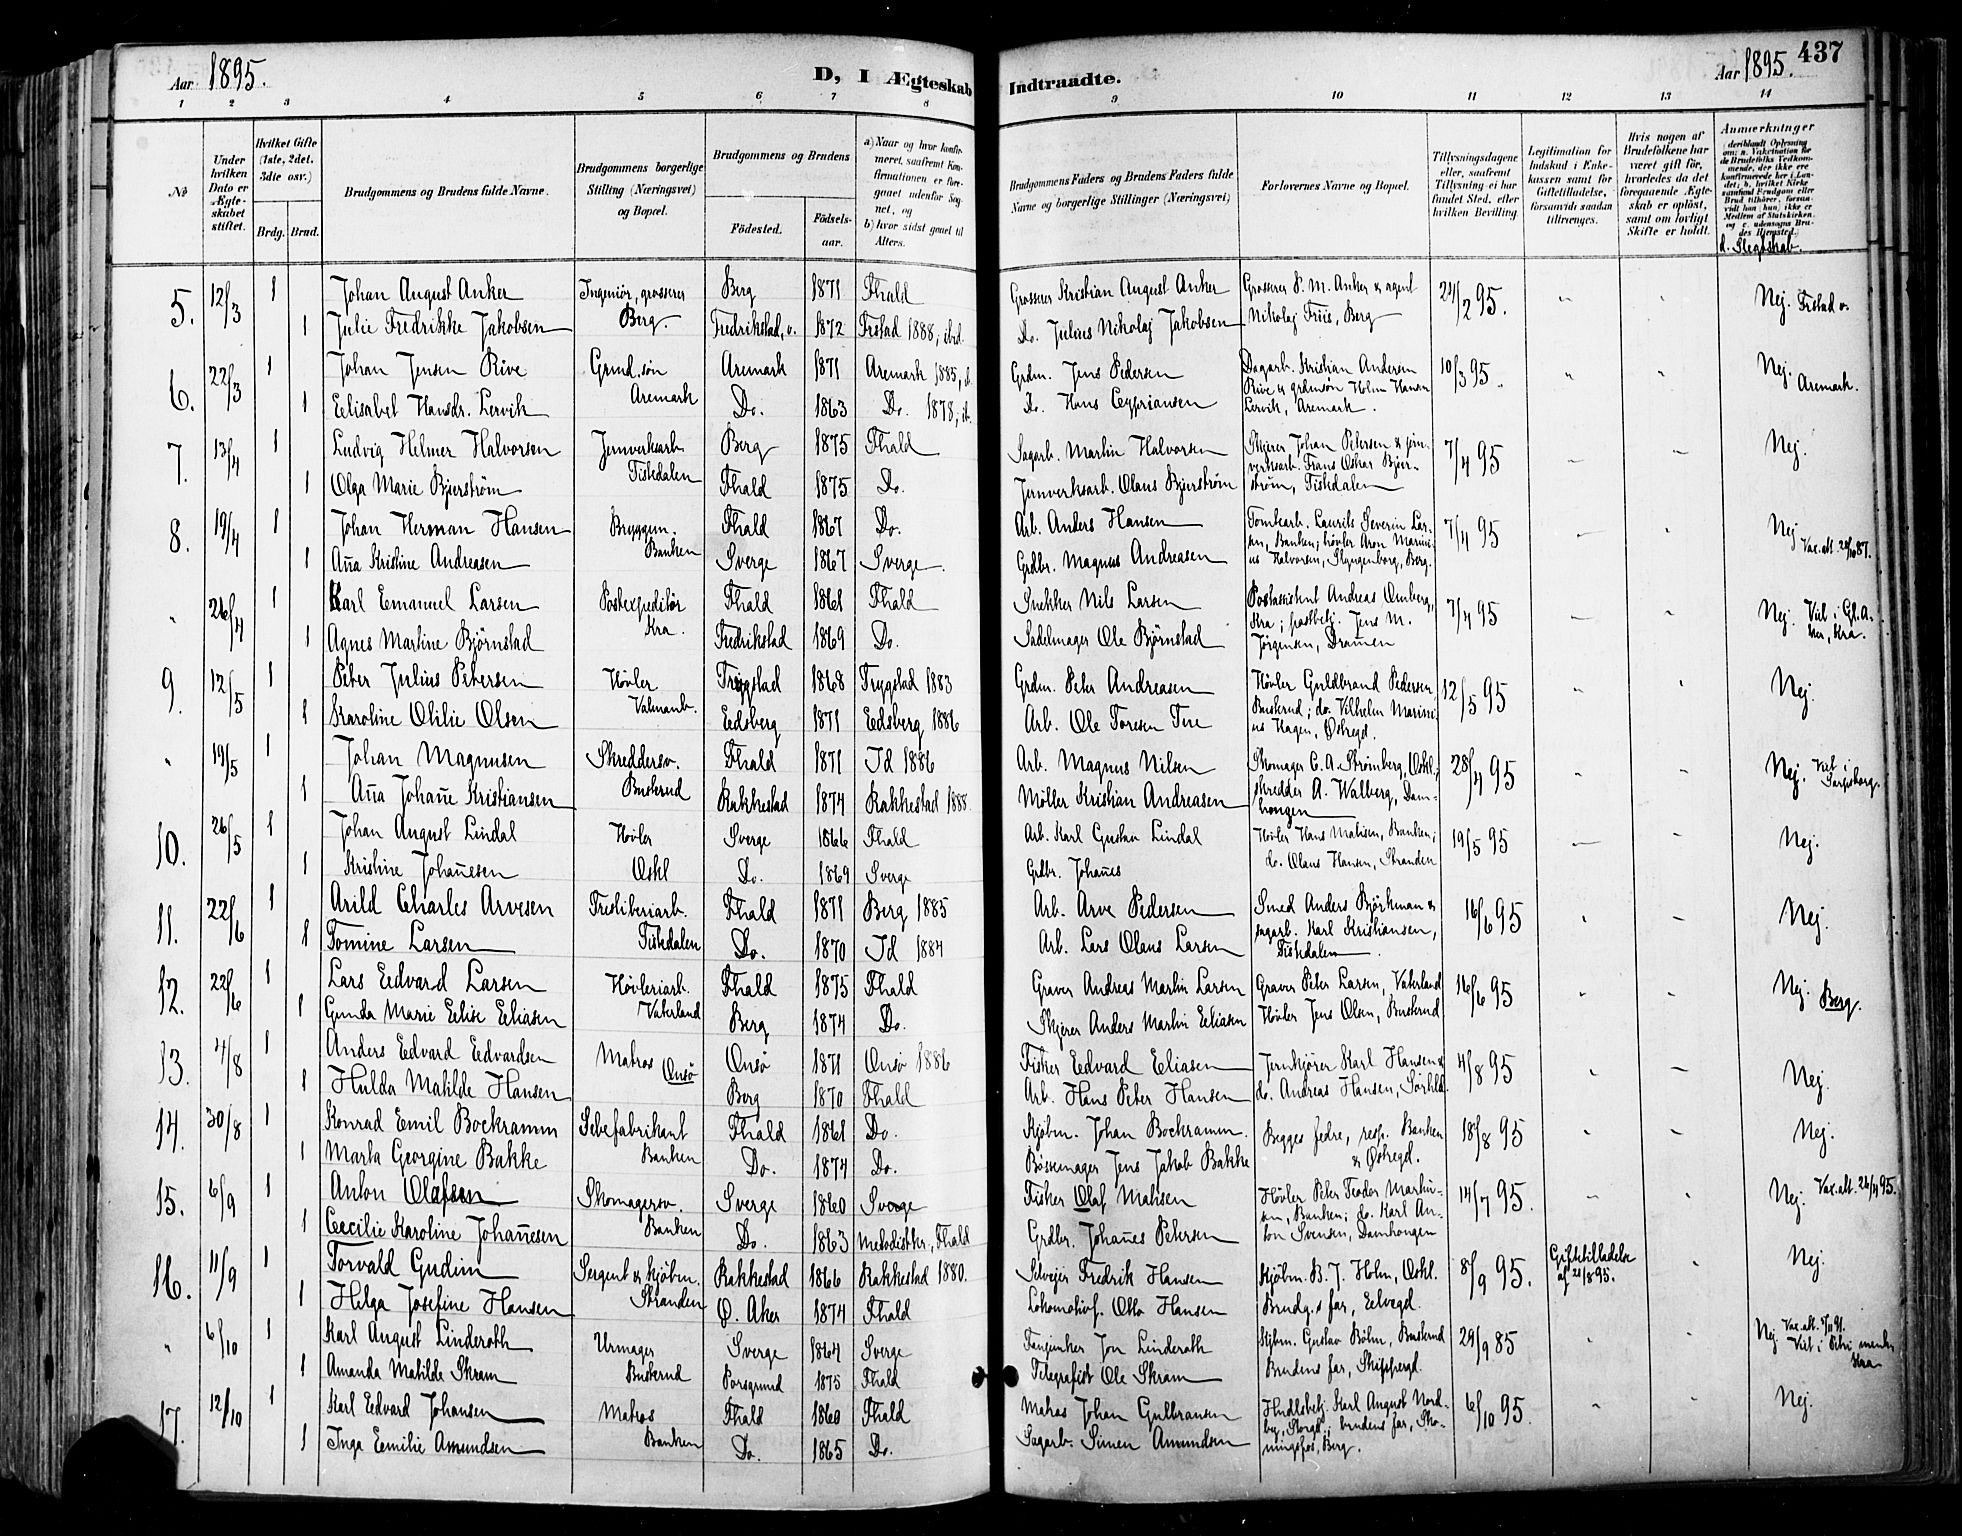 Aar 1895.
D, I Ægteskab Indtraadte.
Aar 1895. 437
1 2 3 4 5 6 7 8 9 10 11 12 13 14
No
Under hvilken Dato er Ægteskabet stiftet.
Hvilket Gifte (1ste, 2det, 3die osv.)
Brdg. Brud.
Brudgommens og Brudens fulde Navne.
Brudgommens borgerlige Stilling (Næringsvei) og Bopæl.
Brudgommens og Brudens
Födested.
Födselsaar.
a) Naar og hvor konfirmeret, saafremt Konfirmationen er foregaaet udenfor Sognet, og
b) hvor sidst gaaet til Alters.
Brudgommens Faders og Brudens Faders fulde Navne og borgerlige Stillinger (Næringsvei)
Forlovernes Navne og Bopæl.
Tillysningsdagene eller, saafremt Tillysning ei har fundet Sted, efter hvilken Bevilling.
Legitimation for Indskud i Enkekassen samt for Giftetilladelse, forsaavidt saadan tiltrænges.
Hvis nogen af Brudefolkene har været gift för, hvorledes da det foregaaende Ægteskab er oplöst, samt om lovligt Skifte er holdt.
Anmærkninger
d. Slegtskab.
5. 12/3 1 Johan August Anker Ingeniör, grosserer Berg 1871 Fhald Grosserer Kristian August Anker Grosserer P. M. Anker & agent 24/2 95. " " Nej. Frstad v.
1 Julie Fredrikke Jakobsen Berg. Fredrikstad, v. 1872 Frstad 1888, ibid. Do. Julius Nikolaj Jakobsen Nikolaj Friis, Berg
6. 22/3 1 Johan Jensen Rive Grmd.sön Aremark 1871 Aremark 1885, ib. Grdm. Jens Pedersen Dagarb. Kristian Andersen 10/3 95. " " Nej. Aremark.
Rive & grdmsön Holm Hansen
1 Elisabet Hansdr. Lervik Aremark Do. 1863 Do. 1878, ib. Do. Hans Cypriansen Lervik, Aremark.
7. 13/4 1 Ludvig Helmer Halvorsen Jernverksarb. Berg 1875 Fhald Sagarb. Martin Halvorsen Skjærer Johan Petersen & jern- 7/4 95 Nej.
verksarb. Frans Oskar Bjer-
1 Olga Marie Bjerström Tistedalen Fhald 1875 Do. Jernverksarb. Olaus Bjerström ström, Tistedalen
8. 19/4 1 Johan Herman Hansen Bryggem. Fhald 1867 Do. Arb. Anders Hansen Tomtearb. Laurits Severin Lar- 7/4 95 Nej
sen, Banken; hövler Aron Marini-
1 Anna Kristine Andreasen Banken Sverge 1867 Sverge. Grdbr. Magnus Andreasen us Halvorsen, Berg. Vax.att.
" 26/4 1 Karl Emanuel Larsen Postexpeditör Fhald 1861 Fhald Snekker Nils Larsen Postassistent Andreas Omberg, 7/4 95 Nej. Viet i Gl. A-
Kra; postbetj. Jens M. ker, Kra.
1 Agnes Martine Björnstad Kra. Fredrikstad 1869 Do. Sadelmager Ole Björnstad Jörgensen, Drammen
9. 12/5 1 Peter Julius Petersen Hövler Trygstad 1868 Trygstad 1883 Grdm. Peter Andreasen Hövler Guldbrand Pedersen 12/5 95 Nej.
Buskrud; do. Vilhelm Marini-
1 Karoline Otilie Olsen Eidsberg 1871 Eidsberg 1886 Arb. Ole Toresen us Hagen, Östregd.
" 19/5 1 Johan Magnusen Skreddersv. Fhald 1871 Id 1886 Arb. Magnus Nilsen Skomager C. A. Strömberg, Oskl.; 28/4 95 Nej. Viet i
skredder A. Walberg, Dam- Sarpsborg.
1 Anna Johanne Kristiansen Buskrud Rakkestad 1874 Rakkestad 1888 Möller Kristian Andreasen hougen
10. 26/5 1 Johan August Lindal Hövler Sverge 1866 Fhald Arb. Karl Gustav Lindal Hövler Hans Matisen, Banken; 19/5 95 Nej.
1 Kristine Johannesen Oskl Do. 1869 Sverge Grdbr. Johannes do. Olaus Hansen, Stranden
11. 22/6 1 Arild Charles Arvesen Tresliberiarb. Fhald 1871 Berg 1885 Arb. Arve Pedersen Smed Anders Björkman & 16/6 95 Nej.
sagarb. Karl Kristiansen,
1 Tomine Larsen Tistedalen Do. 1870 Id 1884 Arb. Lars Olaus Larsen Tistedalen.
12. 22/6 1 Lars Edvard Larsen Hövleriarb. Fhald 1875 Fhald Graver Andreas Martin Larsen Graver Peter Larsen, Vaterland 16/6 95 Nej. Berg.
1 Gunda Marie Elise Eliasen Vaterland Berg 1874 Do. Skjærer Anders Martin Eliasen Hövler Jens Olsen, Buskrud
13. 4/8 1 Anders Edvard Edvardsen Matros Onsö 1871 Onsö 1886 Fisker Edvard Eliasen Jernkjörer Karl Hansen & 4/8 95 Nej.
1 Hulda Matilde Hansen Onsö Berg 1870 Fhald Arb. Hans Peter Hansen do. Andreas Hansen, Sörhld.
14. 30/8 1 Konrad Emil Bockramm Sebefabrikant Fhald 1861 Do. Kjöbm. Johan Bockramm. Begges fedre, resp. Banken 18/8 95 Nej.
1 Marta Georgine Bakke Banken Do. 1874 Do. Bössemager Jens Jakob Bakke & Östregd.
15. 6/9 1 Anton Olafsen Skomagersv. Sverge 1860 Sverge Fisker Olaf Matisen Hövler Peter Teodor Martin- 14/7 95. Nej. Vax.att. 26/4 95.
sen, Banken; do. Karl An-
1 Cecilie Karoline Johannesen Banken Do. 1863 Metodistker., Fhald Grdbr. Johannes Petersen ton Svensen, Damhougen
16. 11/9 1 Torvald Gudim Sergent & kjöbm. Rakkestad 1866 Rakkestad 1880. Selvejer Fredrik Hansen Kjöbm. B. J. Holm, Oskl. 8/9 95. Giftetilladelse af 21/8 95. Nej.
1 Helga Josefine Hansen Stranden Ö. Aker 1874 Fhald Lokomotivf. Otto Hansen Brudg.s far, Elvegd.
" 6/10 1 Karl August Linderoth Urmager Sverge 1864 Sverge Fanjunker Jon Linderoth Kjbm. Gustav Böhn, Buskrud 29/9 85 Nej. Vax.att.
1 Amanda Matilde Skram Buskrud Porsgrund 1875 Fhald Telegrafist Ole Skram Brudens far, Skippergd. Viet i Petri menih. Kra
17. 12/10 1 Karl Edvard Johansen Matros Fhald 1860 Fhald Matros Johan Gulbransen Handlsbetj. Karl August Nord- 6/10 95. Nej.
by, Storgd.; brudens far, Sko-
1 Inga Emilie Amundsen Banken Do. 1865 Do. Sagarb. Simen Amundsen ningsfos, Berg.